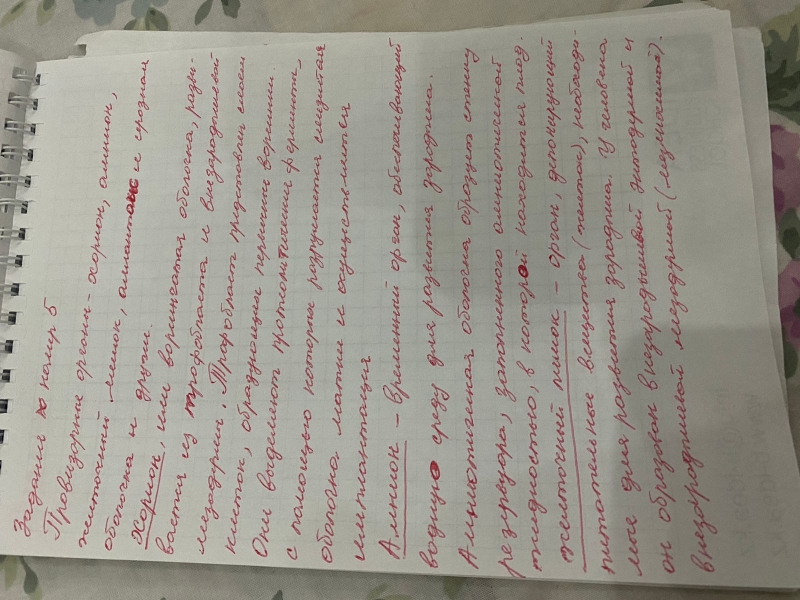 Задания номер 5
Провизорные органы - хорион, амнион,
желточный мешок, аллантоис и серозная
оболочка и другои.
Хорион, или ворсинчатая оболочка, разви-
вается из трофобласта и внезародышевой
мезодермы. Трофобласт представлен слоем
клеток, образующих первичные ворсинки.
Они выделяют протеолитический ферменты,
с помощью которых разрушается слизистая
оболочка матки и осуществляется
имплантация
Амнион - временный орган, обеспечивающий
водную среду для развития зародыша.
Амниотическая оболочка образует стенку
резервуара, заполненного амниотической
жидкостью, в которой находится плод.
Желточный мешок - орган, депонирующий
питательные вещества (желток), необходи-
мое для развития зародыша. У человека
он образован внезародышевой энтодермой и
внезародышевой мезодермой (мезенхима).